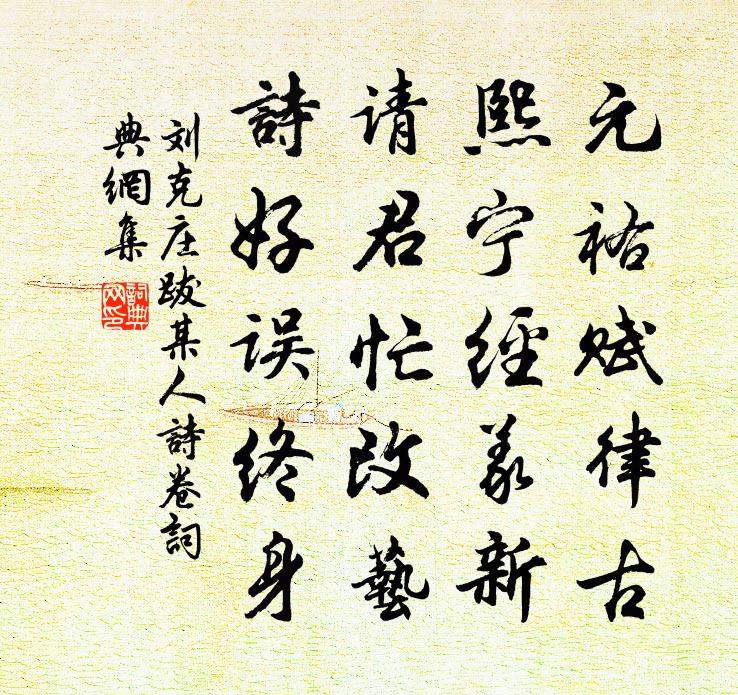 元祐赋律古
熙宁經义新
请君忙改藝
詩好误终身
刘克庄跋某人詩卷詞
典網集
詞典网印